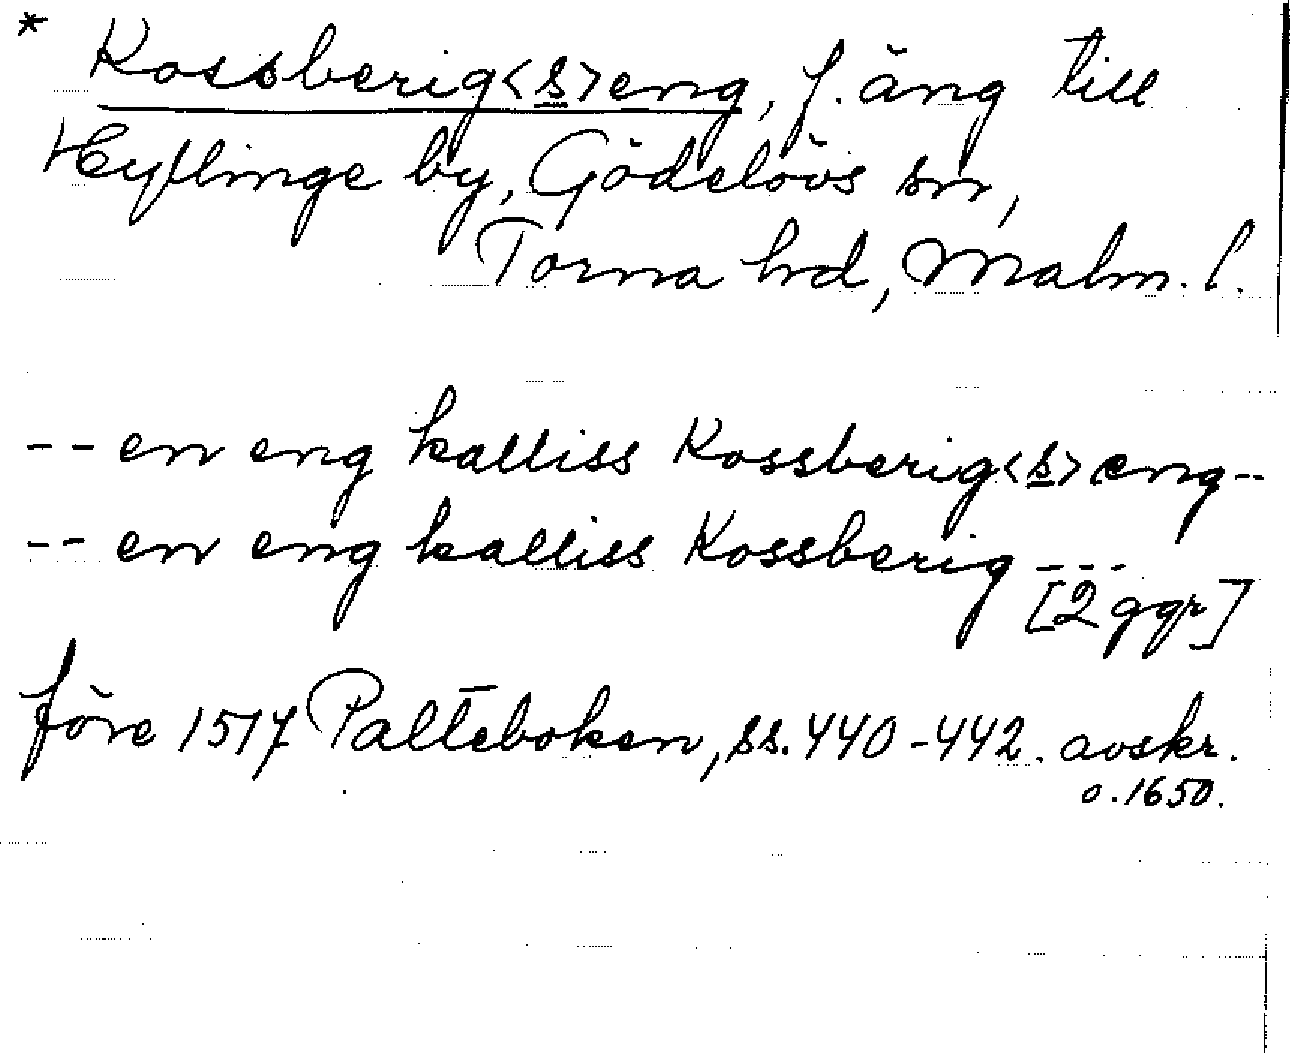 * Kossberig<s>eng, f. äng till
Heflinge by, Gödelövs sn,
Torna hd, Malm. l.
-- en eng kalliss Kossberig<s>eng--
-- en eng kalliss Kossberig ---
[2 ggr]
före 1517 Palteboken, ss. 440-442. avskr.
o. 1650.